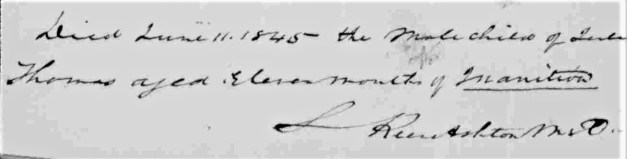 Died June 11. 1845 the Male child of
Thomas aged Eleven months of Inanition
Ashton M.D.